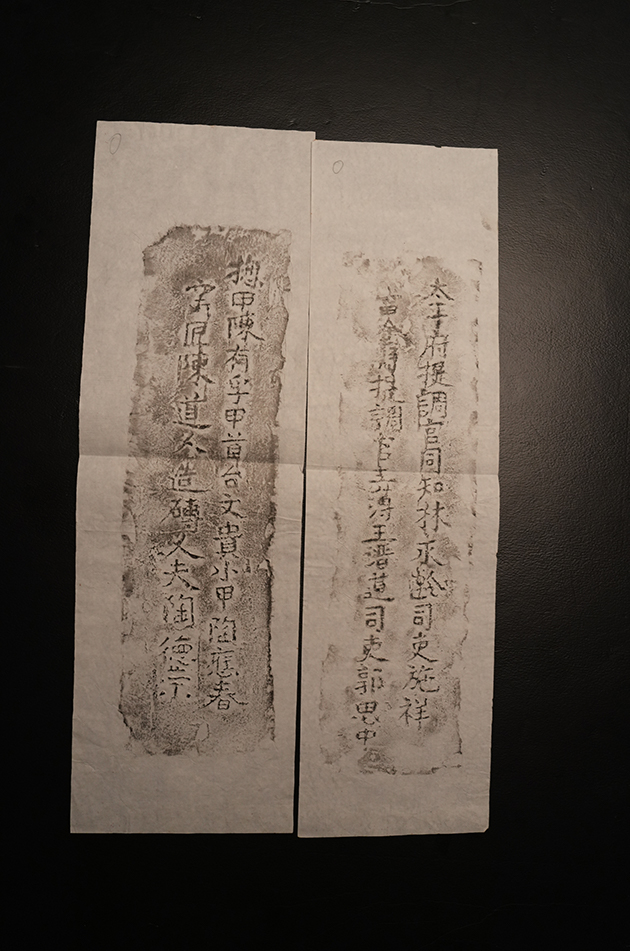 太平府提調官同知林永齡司吏施祥
當塗縣提調官主簿王潛道司吏郭思中
總甲陳有孚甲首台文貴小甲陶應春
窑匠陳道久造磚人夫陶德宗